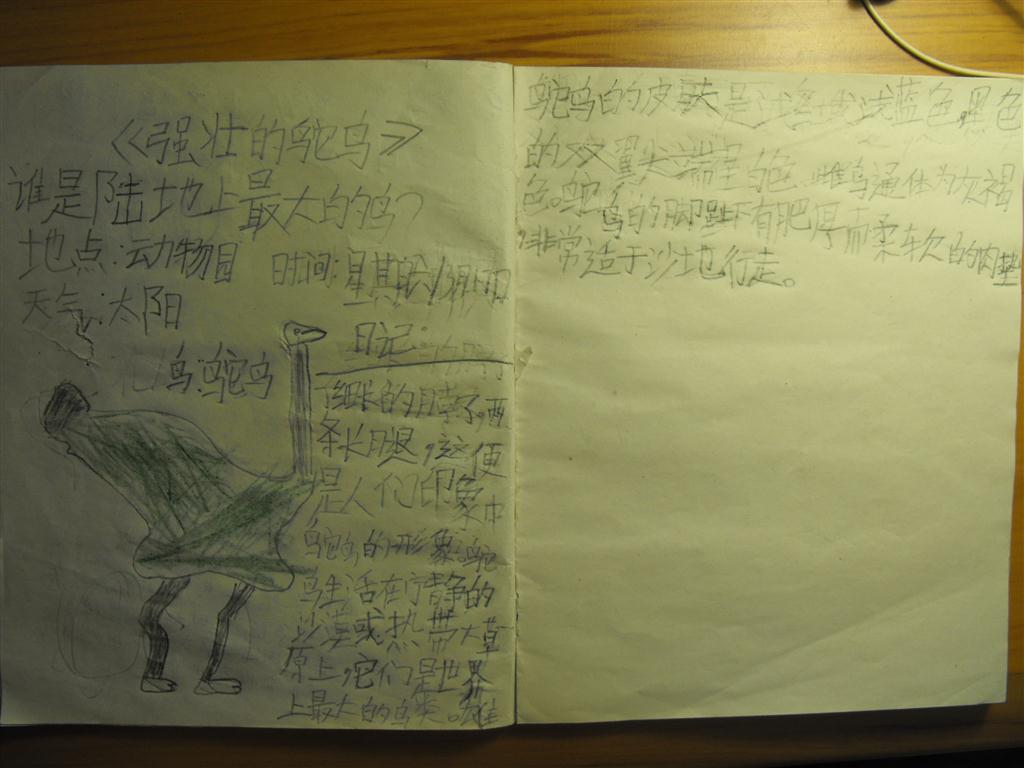 《强壮的鸵鸟》
谁是陆地上最大的鸟？
地点：动物园 时间：星期
天气：太阳
日记：
鸟：鸵鸟
细长的脖子，两
条长腿，这便
是人们印象中
鸵鸟的形象。鸵
鸟生活在宁静的
沙漠或热带大草
原上，它们是世界
上最大的鸟类。雄
鸵鸟的皮肤是 浅蓝色。黑色
的双翼尖端呈白色 雌鸟通体为灰褐
色。鸵鸟的脚趾下有肥厚而柔软的肉垫
非常适于沙地行走。